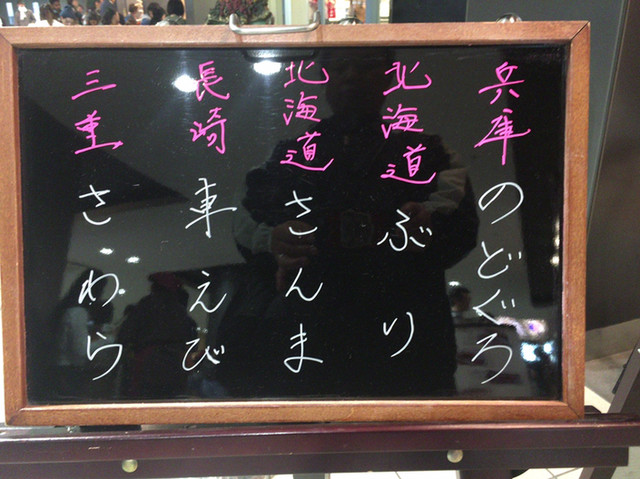 兵庫のどぐろ
北海道ぶり
北海道さんま
長崎車えび
三重さわら